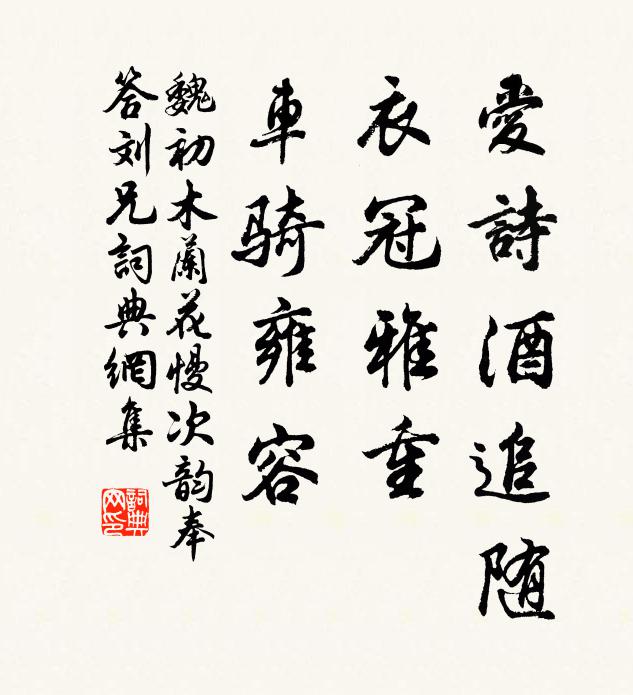 愛詩酒追随
衣冠雅重
車骑雍容
魏初木蘭花慢次韵奉
答刘兄詞典網集
詞典网印